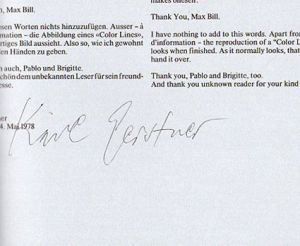 , Max Bill.
esen Worten nichts hinzuzufügen. Ausser – à
mation – die Abbildung eines «Color Lines»,
rtiges Bild aussieht. Also so, wie ich gewohnt
en Händen zu geben.
auch, Pablo und Brigitte.
chön dem unbekannten Leser für sein freund-
sse.
er
4. Mai 1978
makes oneself.
Thank You, Max Bill.
I have nothing to add to this words. Apart from
d'information – the reproduction of a "Color L
looks when finished. As it normally looks, that
hand it over.
Thank you, Pablo and Brigitte, too.
And thank you unknown reader for your kind
Karl Gerstner